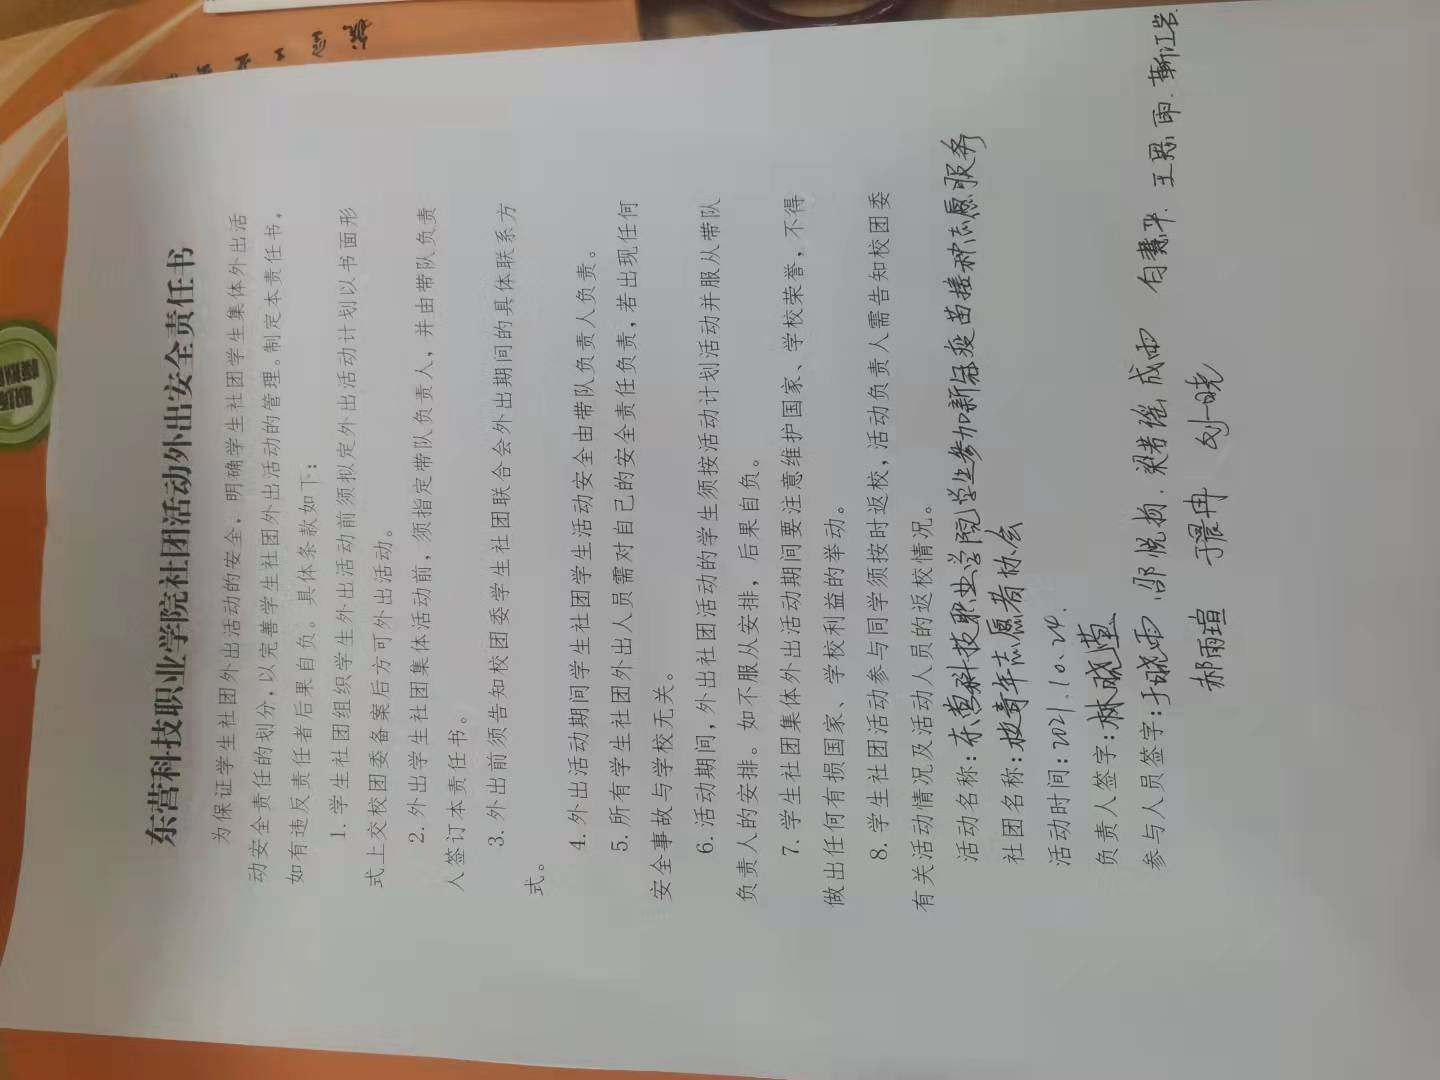 东营科技职业学院社团活动外出安全责任书
为保证学生社团外出活动的安全，明确学生社团学生集体外出活
动安全责任的划分，以完善学生社团外出活动的管理。制定本责任书，
如有违反责任者后果自负。具体条款如下：
1. 学生社团组织学生外出活动前须拟定外出活动计划以书面形
式上交校团委备案后方可外出活动。
2. 外出学生社团集体活动前，须指定带队负责人，并由带队负责
人签订本责任书。
3. 外出前须告知校团委学生社团联合会外出期间的具体联系方
式。
4. 外出活动期间学生社团学生活动安全由带队负责人负责。
5. 所有学生社团外出人员需对自己的安全责任负责，若出现任何
安全事故与学校无关。
6. 活动期间，外出社团活动的学生须按活动计划活动并服从带队
负责人的安排。如不服从安排，后果自负。
7. 学生社团集体外出活动期间要注意维护国家、学校荣誉，不得
做出任何有损国家、学校利益的举动。
8. 学生社团活动参与同学须按时返校，活动负责人需告知校团委
有关活动情况及活动人员的返校情况。
活动名称：东营科技职业学院学生参加新冠疫苗接种志愿服务
社团名称：校青年志愿者协会
活动时间：2021.10.24.
负责人签字：林晓莹
参与人员签字：于晓雨 邵悦扬. 梁若瑶 成雨 白慧平. 王思雨. 靳江岩.
郝雨瑄 于晨冉 刘一晓